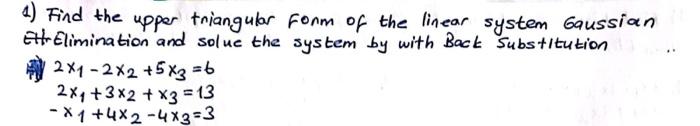 1) Find the upper triangular form of the linear system Gaussian
Elimination and solve the system by with Back Substitution
2x1 - 2x2 + 5x3 = 6
2x1 + 3x2 + x3 = 13
- x1 + 4x2 - 4x3 = 3